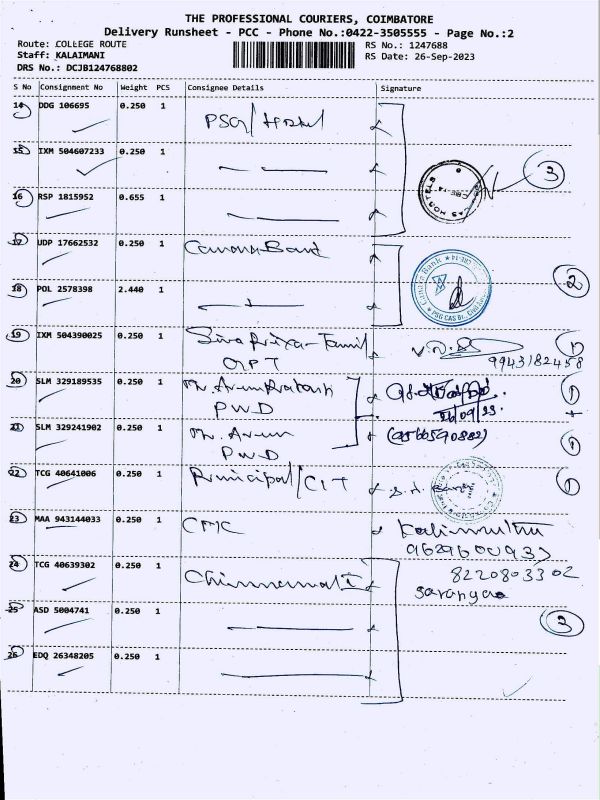 THE PROFESSIONAL COURIERS, COIMBATORE
Delivery Runsheet - PCC - Phone No.:0422-3505555 - Page No.:2
Route: COLLEGE ROUTE
RS No.: 1247688
Staff: KALAIMANI
RS Date: 26-Sep-2023
DRS No.: DCJB124768802
S No Consignment No Weight PCS Consignee Details Signature
14 DDG 106695 0.250 1 PSG/Hostel
15 IXM 504607233 0.250 1
3
16 RSP 1815952 0.655 1
17 UDP 17662532 0.250 1 Canara Bank
Canara Bank
PSG CAS Br.
2
18 POL 2578398 2.440 1
19 IXM 504390025 0.250 1 Tamil
1
9943182458
20 SLM 329189535 0.250 1 Mr. Arun
PWD
1
26/09/23
21 SLM 329241902 0.250 1 Mr. Arun
PWD
(9566590882)
1
22 TCG 40641006 0.250 1 Principal/CIT
1
23 MAA 943144033 0.250 1 CMC Kalimuthu
24 TCG 40639302 0.250 1
8220803302
Saranya
25 ASD 5004741 0.250 1
3
26 EDQ 26348205 0.250 1